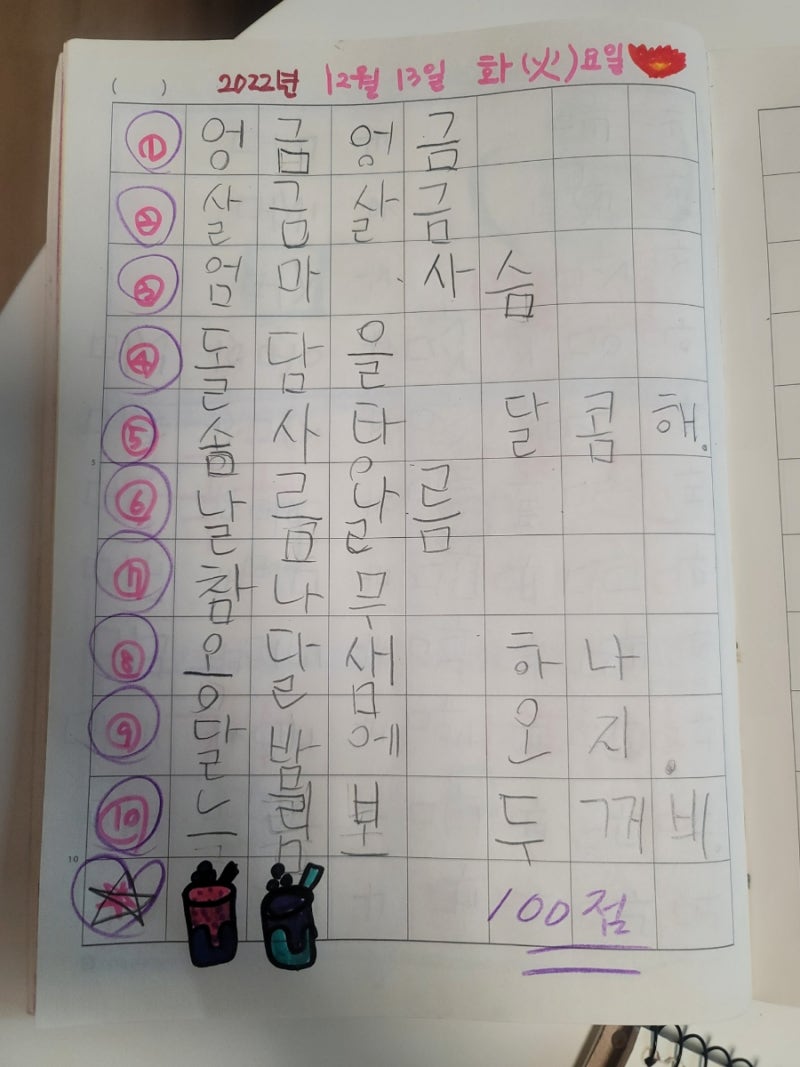 ( ) 2022년 12월 13일 화(火)요일
① 엉금엉금
② 살금살금
③ 엄마 사슴
④ 돌담을
⑤ 솜사타 달콤해.
⑥ 날름날름
⑦ 참나무
⑧ 옹달샘 하나
⑨ 달밤에 오지.
⑩ 느림보 두꺼비
100점
5
10